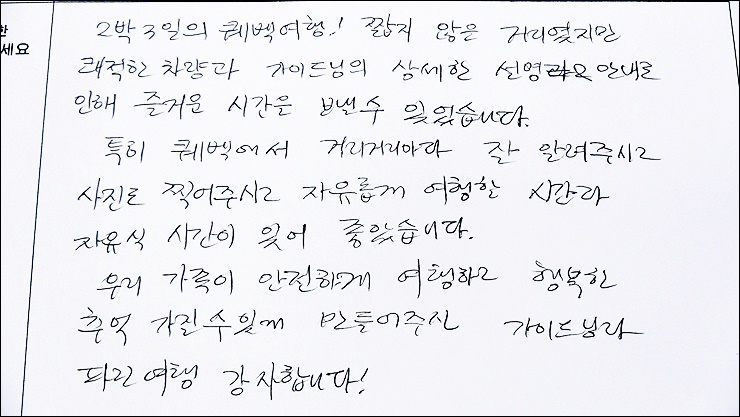 한
세요
2박 3일의 퀘벡여행! 짧지 않은 거리였지만
쾌적한 차량과 가이드님의 상세한 설명과 안내로
인해 즐거운 시간을 보낼 수 있었습니다.
특히 퀘벡에서 거리거리마다 잘 알려주시고
사진도 찍어주시고 자유롭게 여행할 시간과
자유식 시간이 있어 좋았습니다.
우리 가족이 안전하게 여행하고 행복한
추억 가질 수 있게 만들어주신 가이드님과
파란여행 감사합니다!